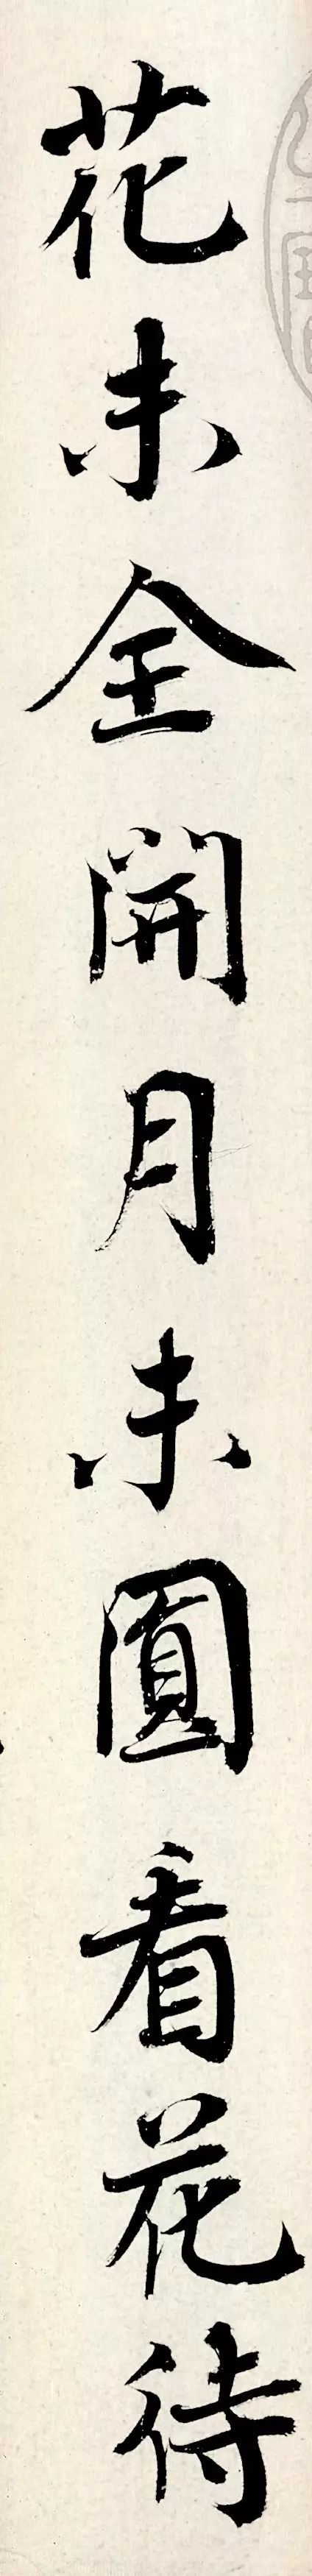 花未全開月未圓看花待